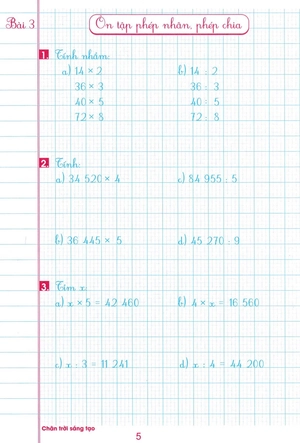 Bài 3
Ôn tập phép nhân, phép chia
1. Tính nhẩm:
a) 14 × 2 b) 14 : 2
36 × 3 36 : 3
40 × 5 40 : 5
72 × 8 72 : 8
2. Tính:
a) 34 520 × 4 c) 84 955 : 5
b) 36 445 × 5 d) 45 270 : 9
3. Tìm x:
a) x × 5 = 42 460 b) 4 × x = 16 560
c) x : 3 = 11 241 d) x : 4 = 44 200
Chân trời sáng tạo
5